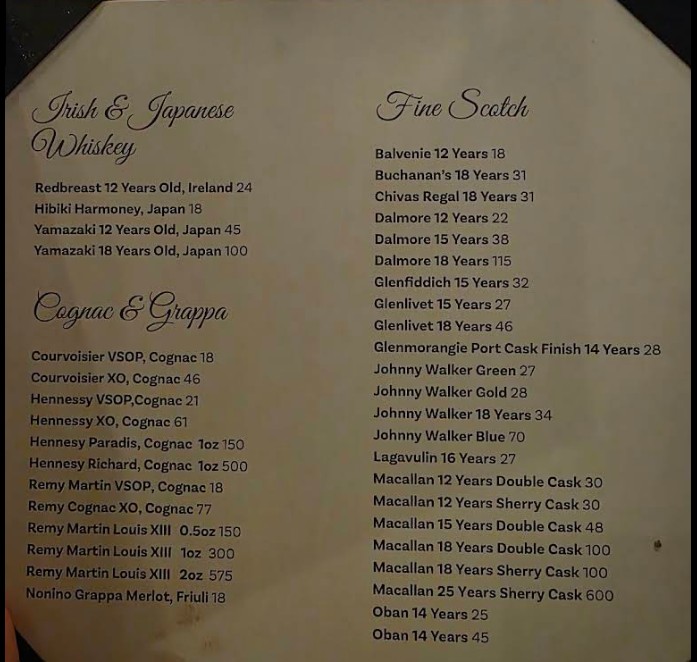 Irish & Japanese
Whiskey
Redbreast 12 Years Old, Ireland 24
Hibiki Harmoney, Japan 18
Yamazaki 12 Years Old, Japan 45
Yamazaki 18 Years Old, Japan 100
Cognac & Grappa
Courvoisier VSOP, Cognac 18
Courvoisier XO, Cognac 46
Hennessy VSOP,Cognac 21
Hennessy XO, Cognac 61
Hennesy Paradis, Cognac 1oz 150
Hennesy Richard, Cognac 1oz 500
Remy Martin VSOP, Cognac 18
Remy Cognac XO, Cognac 77
Remy Martin Louis XIII 0.5oz 150
Remy Martin Louis XIII 1oz 300
Remy Martin Louis XIII 2oz 575
Nonino Grappa Merlot, Friuli 18
Fine Scotch
Balvenie 12 Years 18
Buchanan's 18 Years 31
Chivas Regal 18 Years 31
Dalmore 12 Years 22
Dalmore 15 Years 38
Dalmore 18 Years 115
Glenfiddich 15 Years 32
Glenlivet 15 Years 27
Glenlivet 18 Years 46
Glenmorangie Port Cask Finish 14 Years 28
Johnny Walker Green 27
Johnny Walker Gold 28
Johnny Walker 18 Years 34
Johnny Walker Blue 70
Lagavulin 16 Years 27
Macallan 12 Years Double Cask 30
Macallan 12 Years Sherry Cask 30
Macallan 15 Years Double Cask 48
Macallan 18 Years Double Cask 100
Macallan 18 Years Sherry Cask 100
Macallan 25 Years Sherry Cask 600
Oban 14 Years 25
Oban 14 Years 45